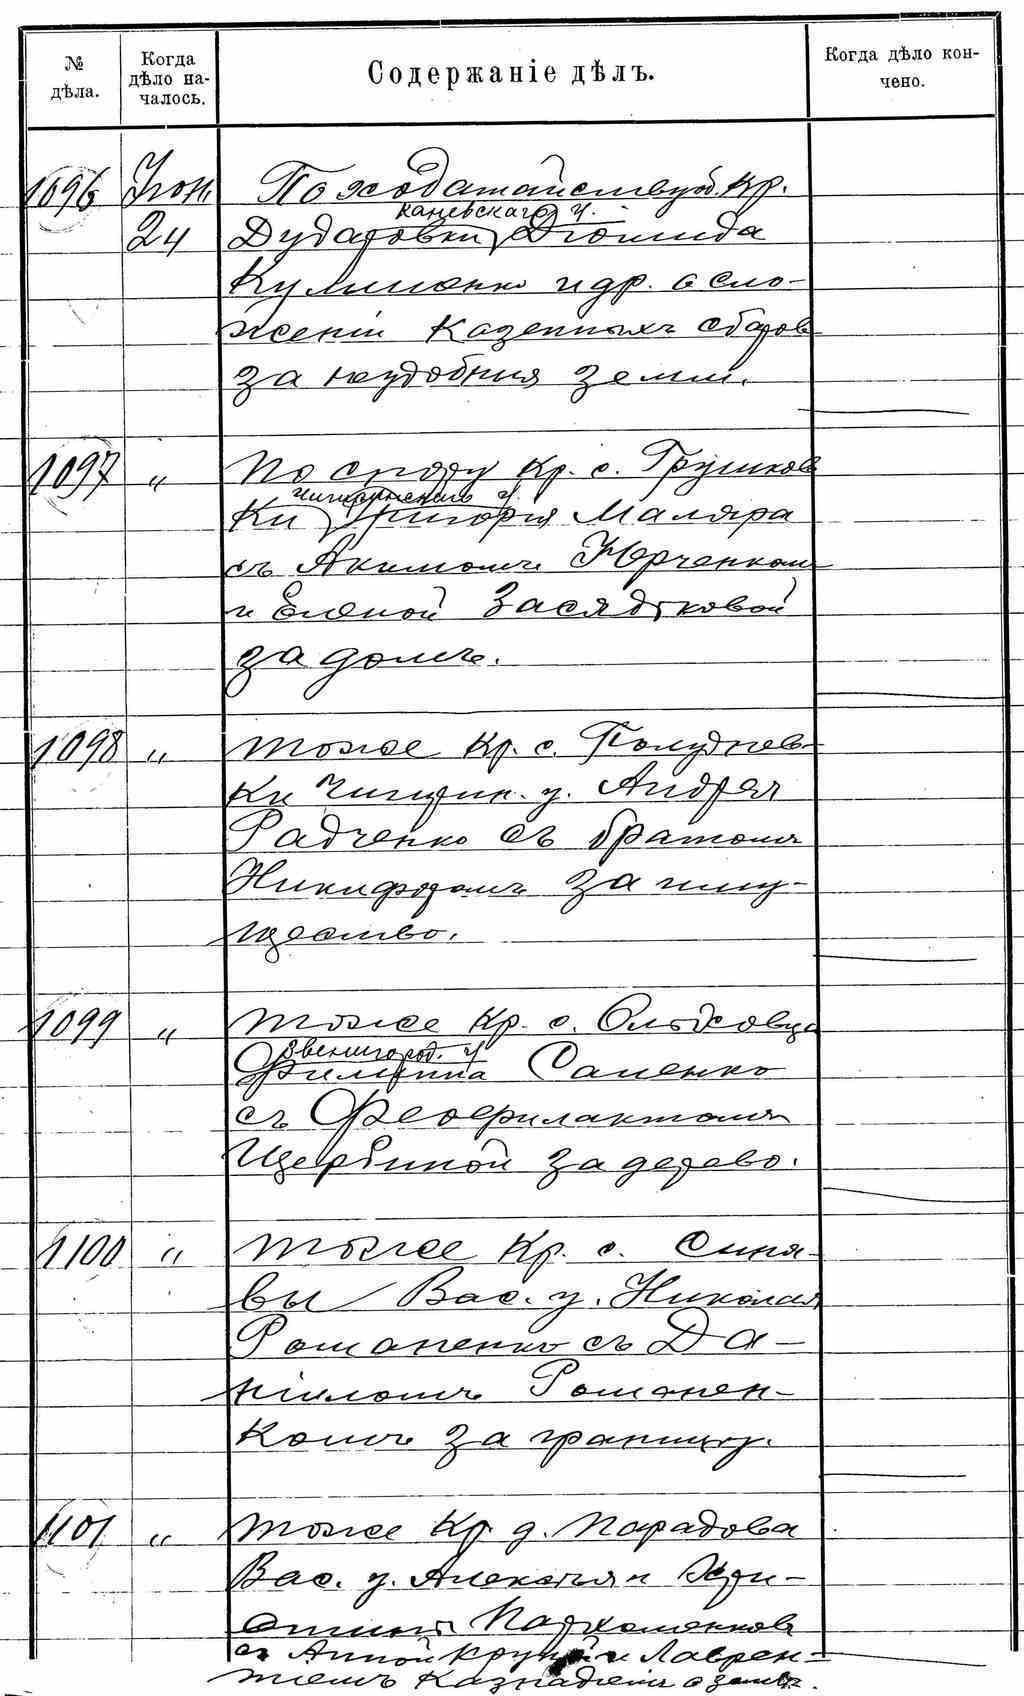 № дѣла.
Когда дѣло началось.
Содержаніе дѣлъ.
Когда дѣло кончено.
1096 Іюн. По ходатайству об. кр.
Каневскаго у.
24 Дударовки Діомида
Кулиненко и др. о сло-
женіи казенныхъ сборов
за неудобныя земли.
1097 „ По спору кр. с. Грушков
Чигиринскаго у.
ки Григорія Маляра
съ Акимомъ Юрченком
и Еленой Засядьковой
за домъ.
1098 „ тоже кр. с. Полуднев-
ки Чигирин. у. Андрея
Радченко съ братомъ
Никифоромъ за иму-
щество.
1099 „ тоже кр. с. Ольховца
Звенигород. у
Филиппа Саленко
съ Феофилактомъ
Щербиной за дерево.
1100 „ тоже кр. с. Синя-
вы Вас. у. Николая
Романенко съ Да-
ніиломъ Романен-
комъ за границу.
1101 „ тоже кр. д. Парадова
Вас. у. Алексѣя и Хри-
стины Пархоменков
съ Анной Крупой и Лаврен-
тіемъ Казнадіемъ о землѣ.